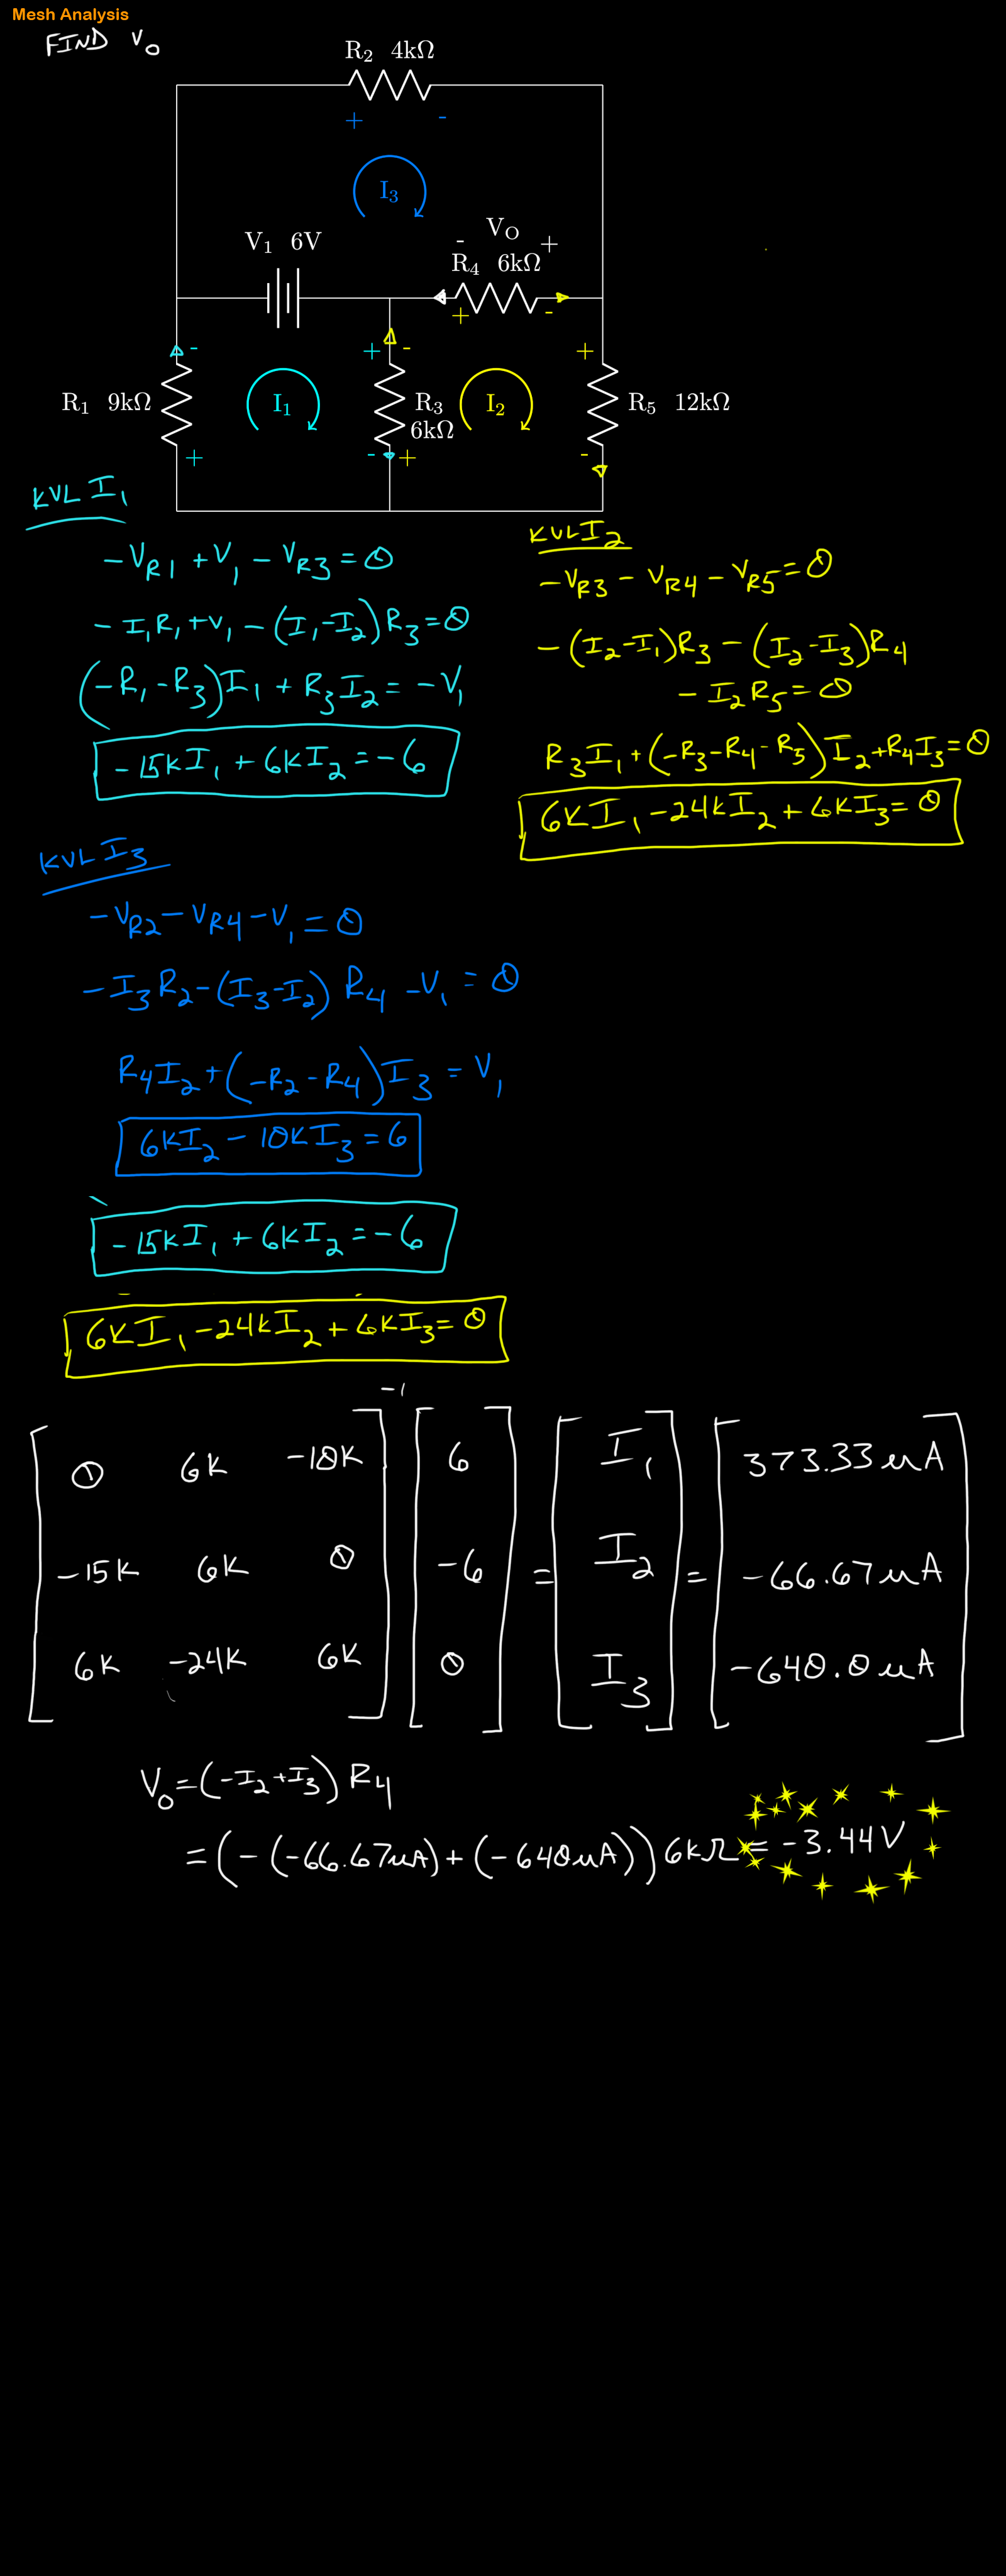 Mesh Analysis
FIND V₀
R₂ 4kΩ
+ -
I₃
V₁ 6V
- V_O +
R₄ 6kΩ
+ -
- + - +
R₁ 9kΩ
I₁
R₃
6kΩ
I₂
R₅ 12kΩ
+ - + -
KVL I₁
-V_R1 + V₁ - V_R3 = 0
- I₁R₁ + V₁ - (I₁-I₂)R₃ = 0
(-R₁-R₃)I₁ + R₃I₂ = -V₁
-15kI₁ + 6kI₂ = -6
KVL I₂
-V_R3 - V_R4 - V_R5 = 0
-(I₂-I₁)R₃ - (I₂-I₃)R₄
- I₂R₅ = 0
R₃I₁ + (-R₃-R₄-R₅)I₂ + R₄I₃ = 0
6kI₁ - 24kI₂ + 6kI₃ = 0
KVL I₃
-V_R2 - V_R4 - V₁ = 0
-I₃R₂ - (I₃-I₂) R₄ - V₁ = 0
R₄I₂ + (-R₂-R₄)I₃ = V₁
6kI₂ - 10kI₃ = 6
-15kI₁ + 6kI₂ = -6
6kI₁ - 24kI₂ + 6kI₃ = 0
-1
0 6k -10k 6 I₁ 373.33 uA
-15k 6k 0 -6 = I₂ = -66.67 uA
6k -24k 6k 0 I₃ -640.0 uA
V₀ = (-I₂+I₃) R₄
= (-(-66.67uA) + (-640uA)) 6kΩ = -3.44V